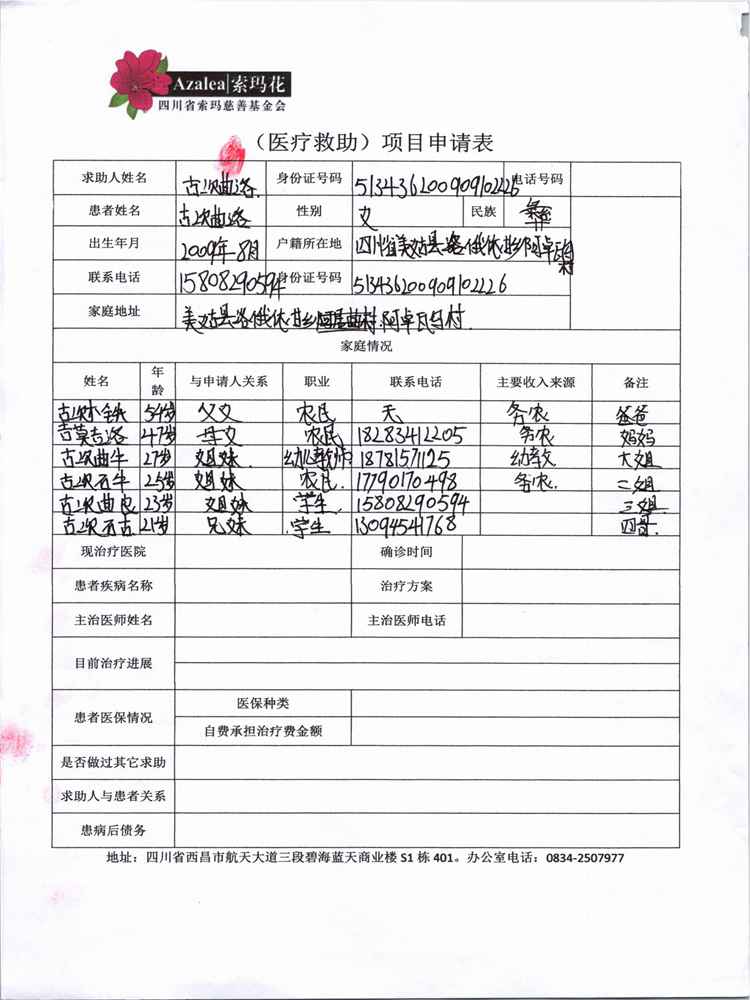 Azalea|索玛花
四川省索玛慈善基金会
（医疗救助）项目申请表
求助人姓名 古次曲洛 身份证号码 513436200909102226 电话号码
患者姓名 古次曲洛 性别 女 民族 彝
出生年月 2009年8月 户籍所在地 四川省美姑县洛俄依甘乡阿卓瓦乌村
联系电话 15808290594 身份证号码 513436200909102226
家庭地址 美姑县洛俄依甘乡 阿卓瓦乌村
家庭情况
姓名 年龄 与申请人关系 职业 联系电话 主要收入来源 备注
古次小铁 54岁 父女 农民 无 务农 爸爸
吉莫吉洛 47岁 母女 农民 18283412205 务农 妈妈
古次曲牛 27岁 姐妹 幼儿教师 18781571125 幼教 大姐
古次石牛 25岁 姐妹 农民 17790170498 务农 二姐
古次曲良 23岁 姐妹 学生 15808290594 三姐
古次石古 21岁 兄妹 学生 13094541768 四哥
现治疗医院 确诊时间
患者疾病名称 治疗方案
主治医师姓名 主治医师电话
目前治疗进展
患者医保情况 医保种类
自费承担治疗费金额
是否做过其它求助
求助人与患者关系
患病后债务
地址：四川省西昌市航天大道三段碧海蓝天商业楼 S1 栋 401。办公室电话：0834-2507977